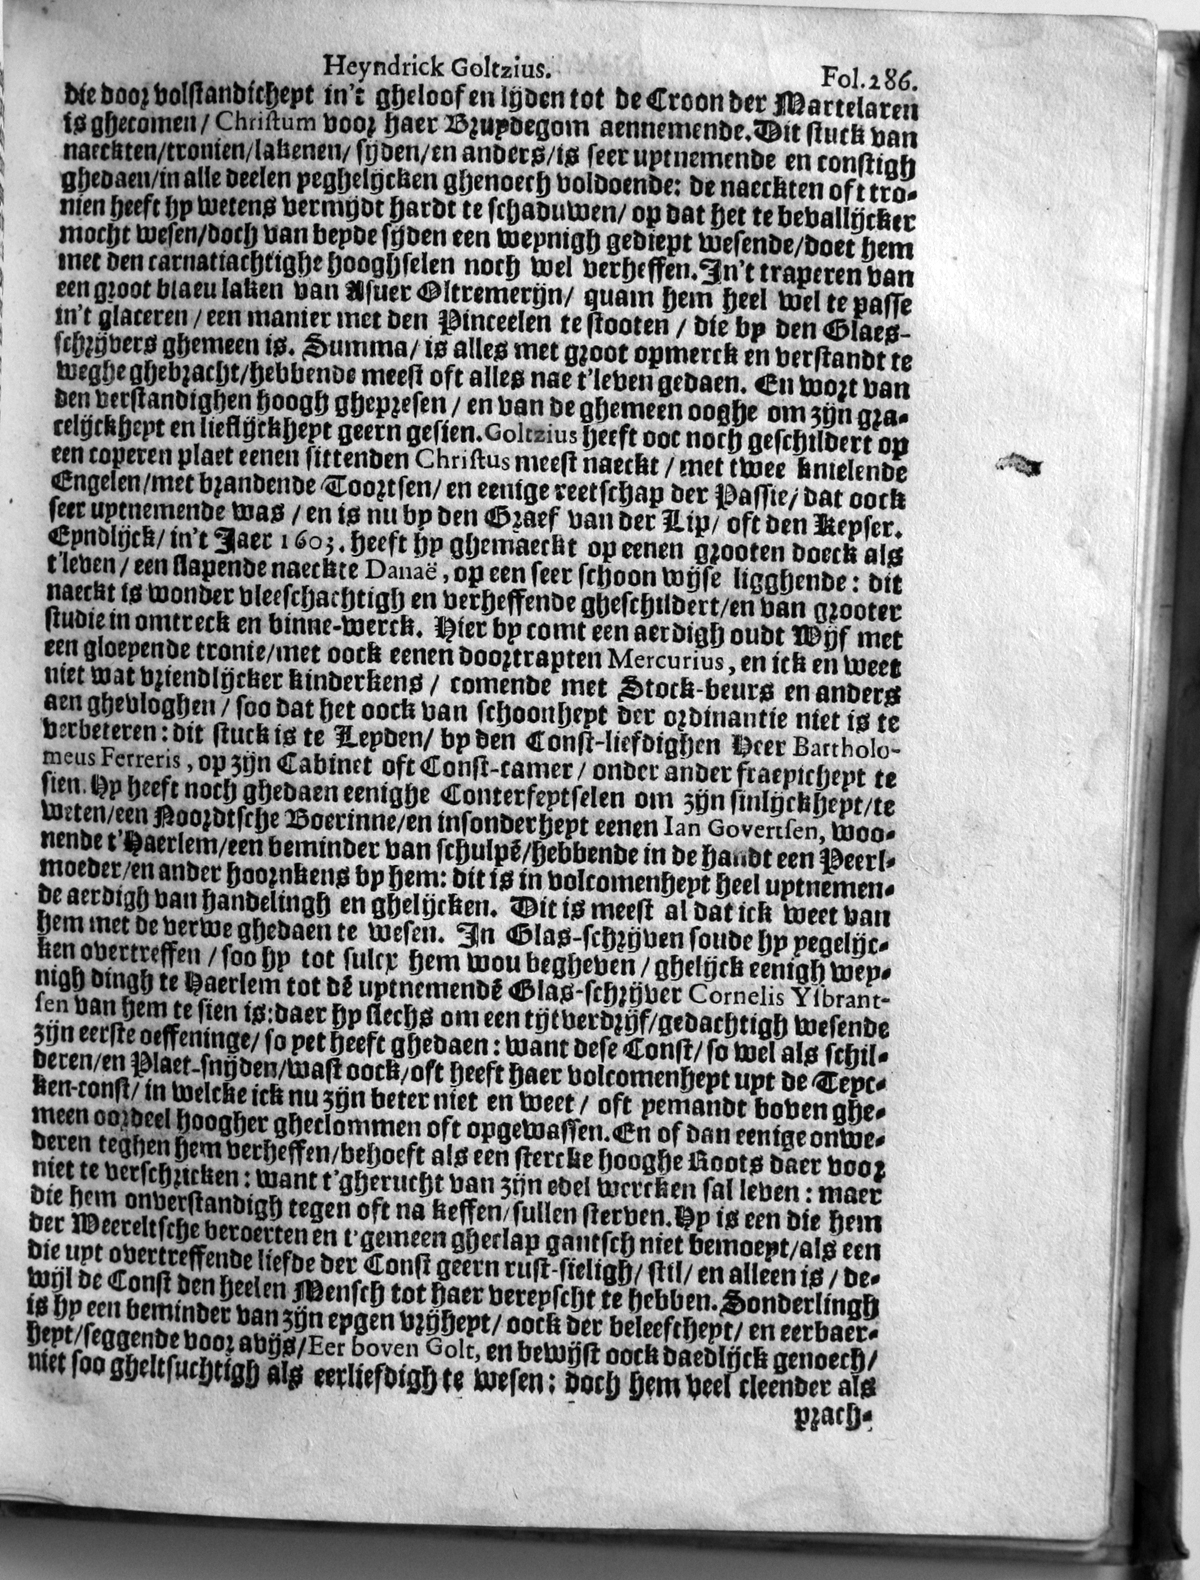 Heyndrick Goltzius. Fol.286.
die door volstandicheyt in't gheloof en lijden tot de Croon der Martelaren
is ghecomen/ Christum voor haer Bruydegom aennemende. Dit stuck van
naeckten/tronien/lakenen/ sijden/en anders/is seer uytnemende en constigh
ghedaen/in alle deelen yeghelijcken ghenoech voldoende: de naeckten oft tro-
nien heeft hy wetens vermijdt hardt te schaduwen/ op dat het te bevallijcker
mocht wesen/doch van beyde sijden een weynigh gediept wesende/doet hem
met den carnatiachtighe hooghselen noch wel verheffen. In't traperen van
een groot blaeu laken van Asuer Oltremerijn/ quam hem heel wel te passe
in't glaceren/ een manier met den Pinceelen te stooten/ die by den Glaes-
schrijvers ghemeen is. Summa/ is alles met groot opmerck en verstandt te
weghe ghebracht/hebbende meest oft alles nae t'leven gedaen. En wort van
den verstandighen hoogh ghepresen/ en van de ghemeen ooghe om zijn gra-
celijckheyt en lieflijckheyt geern gesien. Goltzius heeft ooc noch geschildert op
een coperen plaet eenen sittenden Christus meest naeckt/ met twee knielende
Engelen/met brandende Toortsen/ en eenige reetschap der Passie/ dat oock
seer uytnemende was/ en is nu by den Graef van der Lip/ oft den Keyser.
Eyndlijck/ in't Jaer 1603. heeft hy ghemaeckt op eenen grooten doeck als
t'leven/ een slapende naeckte Danaë, op een seer schoon wijse ligghende: dit
naeckt is wonder vleeschachtigh en verheffende gheschildert/en van grooter
studie in omtreck en binne-werck. Hier by comt een aerdigh oudt Wijf met
een gloeyende tronie/met oock eenen doortrapten Mercurius, en ick en weet
niet wat vriendlijcker kinderkens/ comende met Stock-beurs en anders
aen ghevloghen/ soo dat het oock van schoonheyt der ordinantie niet is te
verbeteren: dit stuck is te Leyden/ by den Const-liefdighen Heer Bartholo-
meus Ferreris, op zijn Cabinet oft Const-camer/ onder ander fraeyicheyt te
sien. Hy heeft noch ghedaen eenighe Conterfeytselen om zijn sinlijckheyt/te
weten/een Noordtsche Boerinne/en insonderheyt eenen Ian Govertsen, woo-
nende t'Haerlem/een beminder van schulpē/hebbende in de handt een Peerl-
moeder/en ander hoornkens by hem: dit is in volcomenheyt heel uytnemen-
de aerdigh van handelingh en ghelijcken. Dit is meest al dat ick weet van
hem met de verwe ghedaen te wesen. In Glas-schrijven soude hy yegelijc-
ken overtreffen/ soo hy tot sulcx hem wou begheven/ ghelijck eenigh wey-
nigh dingh te Haerlem tot dē uytnemendē Glas-schrijver Cornelis Ysbrant-
sen van hem te sien is: daer hy slechs om een tijtverdrijf/gedachtigh wesende
zijn eerste oeffeninge/ so yet heeft ghedaen: want dese Const/ so wel als schil-
deren/en Plaet-snijden/wast oock/oft heeft haer volcomenheyt uyt de Teyc-
ken-const/ in welcke ick nu zijn beter niet en weet/ oft yemandt boven ghe-
meen oordeel hoogher gheclommen oft opgewassen. En of dan eenige onwe-
deren teghen hem verheffen/behoeft als een stercke hooghe Roots daer voor
niet te verschricken: want t'gherucht van zijn edel wercken sal leven: maer
die hem onverstandigh tegen oft na keffen/ sullen sterven. Hy is een die hem
der Weereltsche beroerten en t'gemeen gheclap gantsch niet bemoeyt/als een
die uyt overtreffende liefde der Const geern rust-sieligh/ stil/ en alleen is/ de-
wijl de Const den heelen Mensch tot haer vereyscht te hebben. Sonderlingh
is hy een beminder van zijn eygen vrijheyt/ oock der beleeftheyt/ en eerbaer-
heyt/seggende voor avijs/Eer boven Golt, en bewijst oock daedlijck genoech/
niet soo gheltsuchtigh als eerliefdigh te wesen: doch hem veel cleender als
prach-